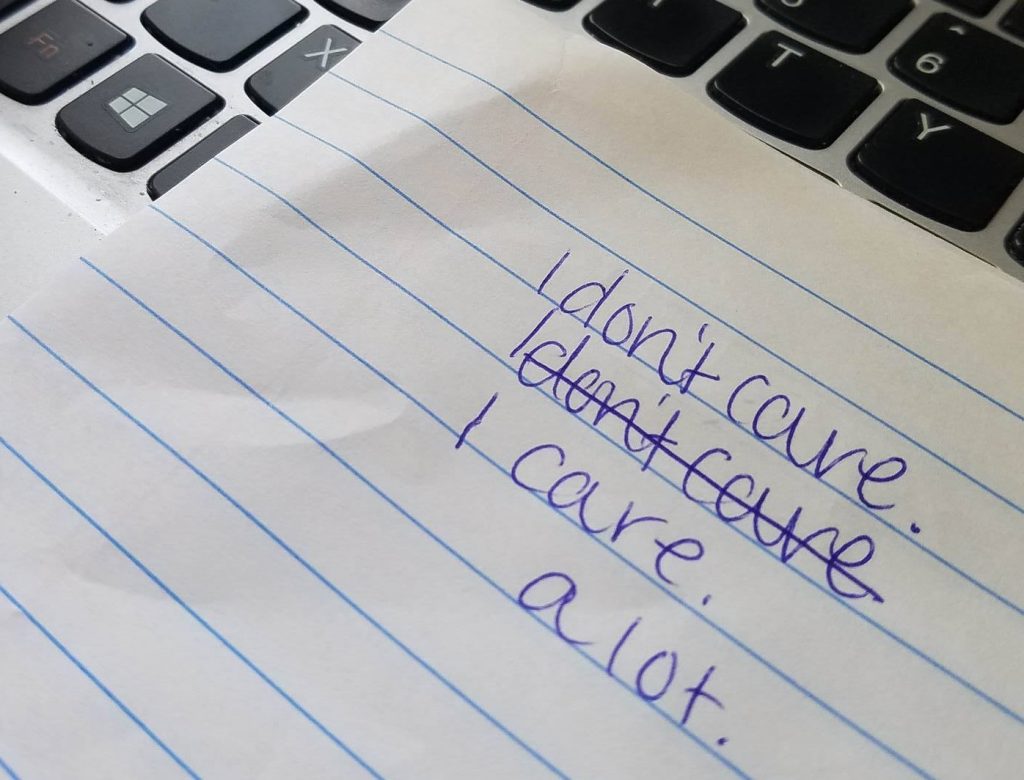 Fn
X
T
6
Y
I don't care.
I don't care
I care.
a lot.